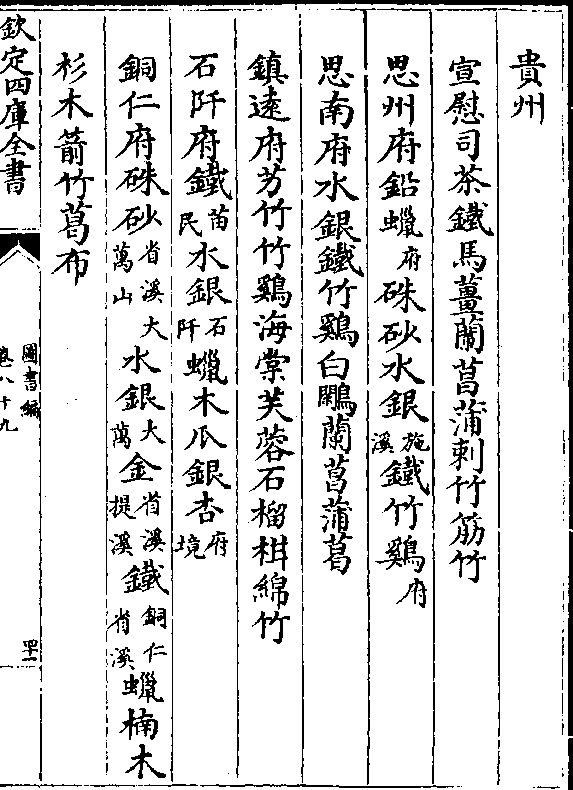 貴州
宣慰司茶鐵馬薑蘭菖蒲刺竹筋竹
思州府鉛蠟府硃砂水銀施溪鐵竹鷄府
思南府水銀鐵竹鷄白鷴蘭菖蒲葛
鎮遠府芀竹竹鷄海棠芙蓉石榴柑綿竹
石阡府鐵苗民水銀石阡蠟木瓜銀杏府境
銅仁府硃砂省溪大萬山水銀大萬金省溪提溪鐵銅仁省溪蠟楠木
杉木箭竹葛布
欽定四庫全書
圖書編
卷八十九
四十一